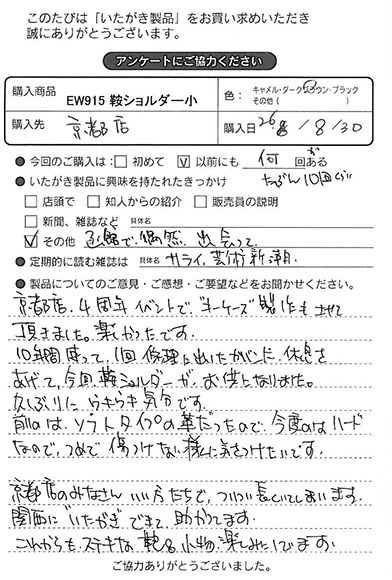 このたびは「いたがき製品」をお買い求めいただき
誠にありがとうございます。
アンケートにご協力ください
購入商品 EW915 鞍ショルダー小 色： キャメル・ダークブラウン・ブラック
その他（ ）
購入先 京都店 購入日 26. 8/30
● 今回のご購入は： □ 初めて ☑ 以前にも 何 回かある
● いたがき製品に興味を持たれたきっかけ たぶん10回ぐらい
□ 店頭で □ 知人からの紹介 □ 販売員の説明
□ 新聞、雑誌など 具体名
☑ その他 で、偶然、出会って。
● 定期的に読む雑誌は 具体名 サライ、芸術新潮、
● 製品についてのご意見・ご感想・ご要望などをお聞かせください。
京都店、4周年イベントで、キーケース製作もさせて
頂きました。楽しかったです。
10年間使って、1回修理に出したカバンに、休息を
あげて、今回、鞍ショルダーが、お供になりました。
久しぶりに、ウキウキ気分です。
前のは、ソフトタイプの革だったので、今度のはハード
なので、つめで傷つけない様に気をつけたいです。
京都店のみなさん、いい方たちで、ついつい長くいてしまいます。
関西に"いたがき"できて、助かってます。
これからも、ステキな鞄&小物、楽しみにしてます
ご協力ありがとうございました。